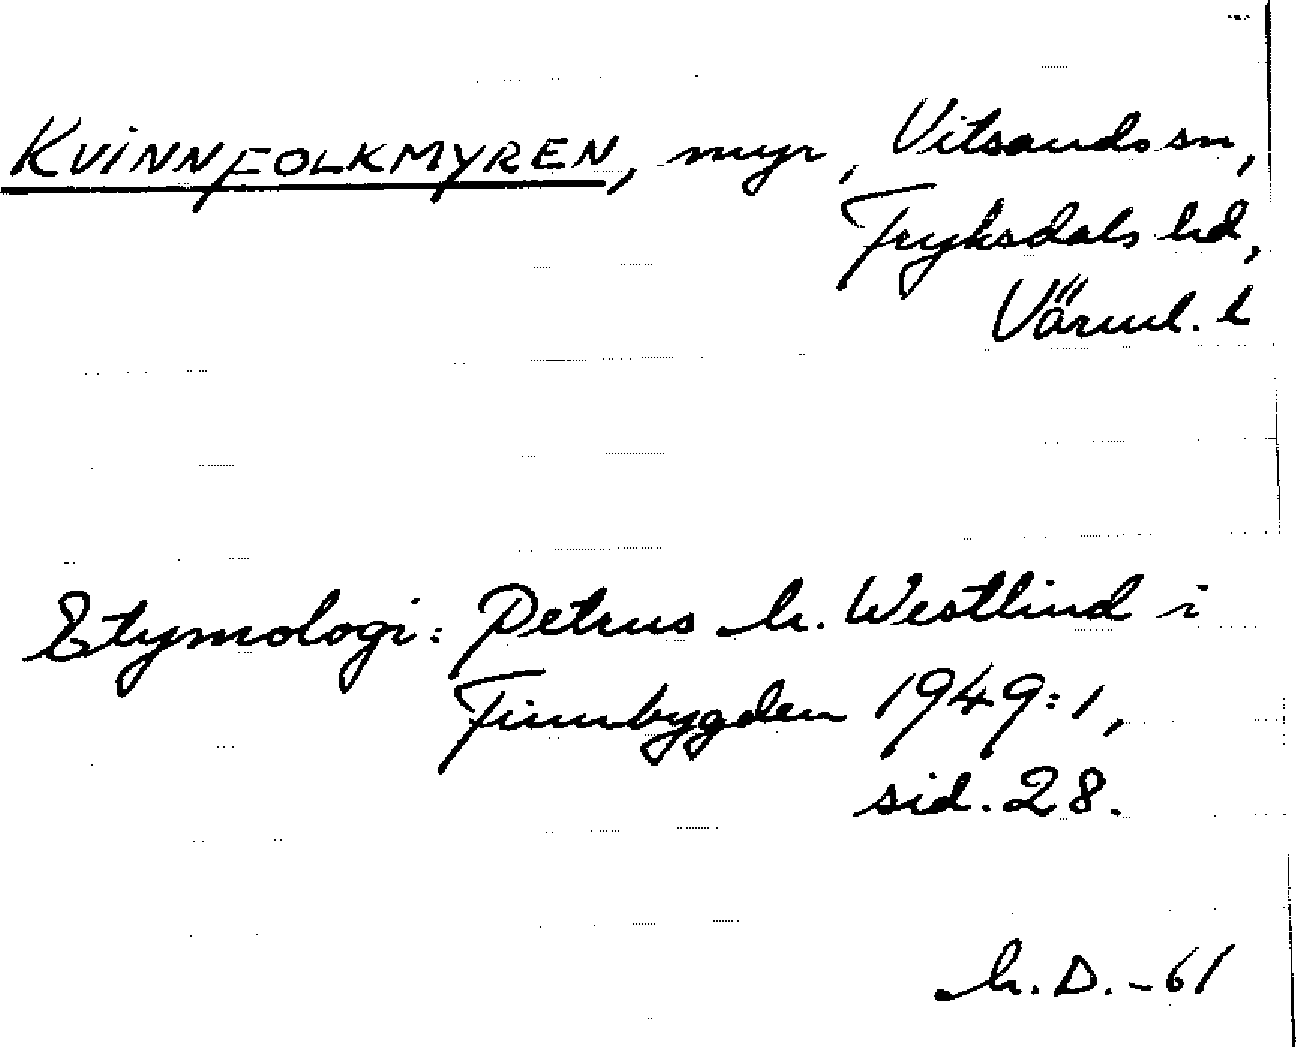 KVINNFOLKMYREN, myr, Vitsands sn,
Fryksdals hd,
Värml. l
Etymologi: Petrus h. Westlind i
Finnbygden 1949:1,
sid. 28.
h. D. -61